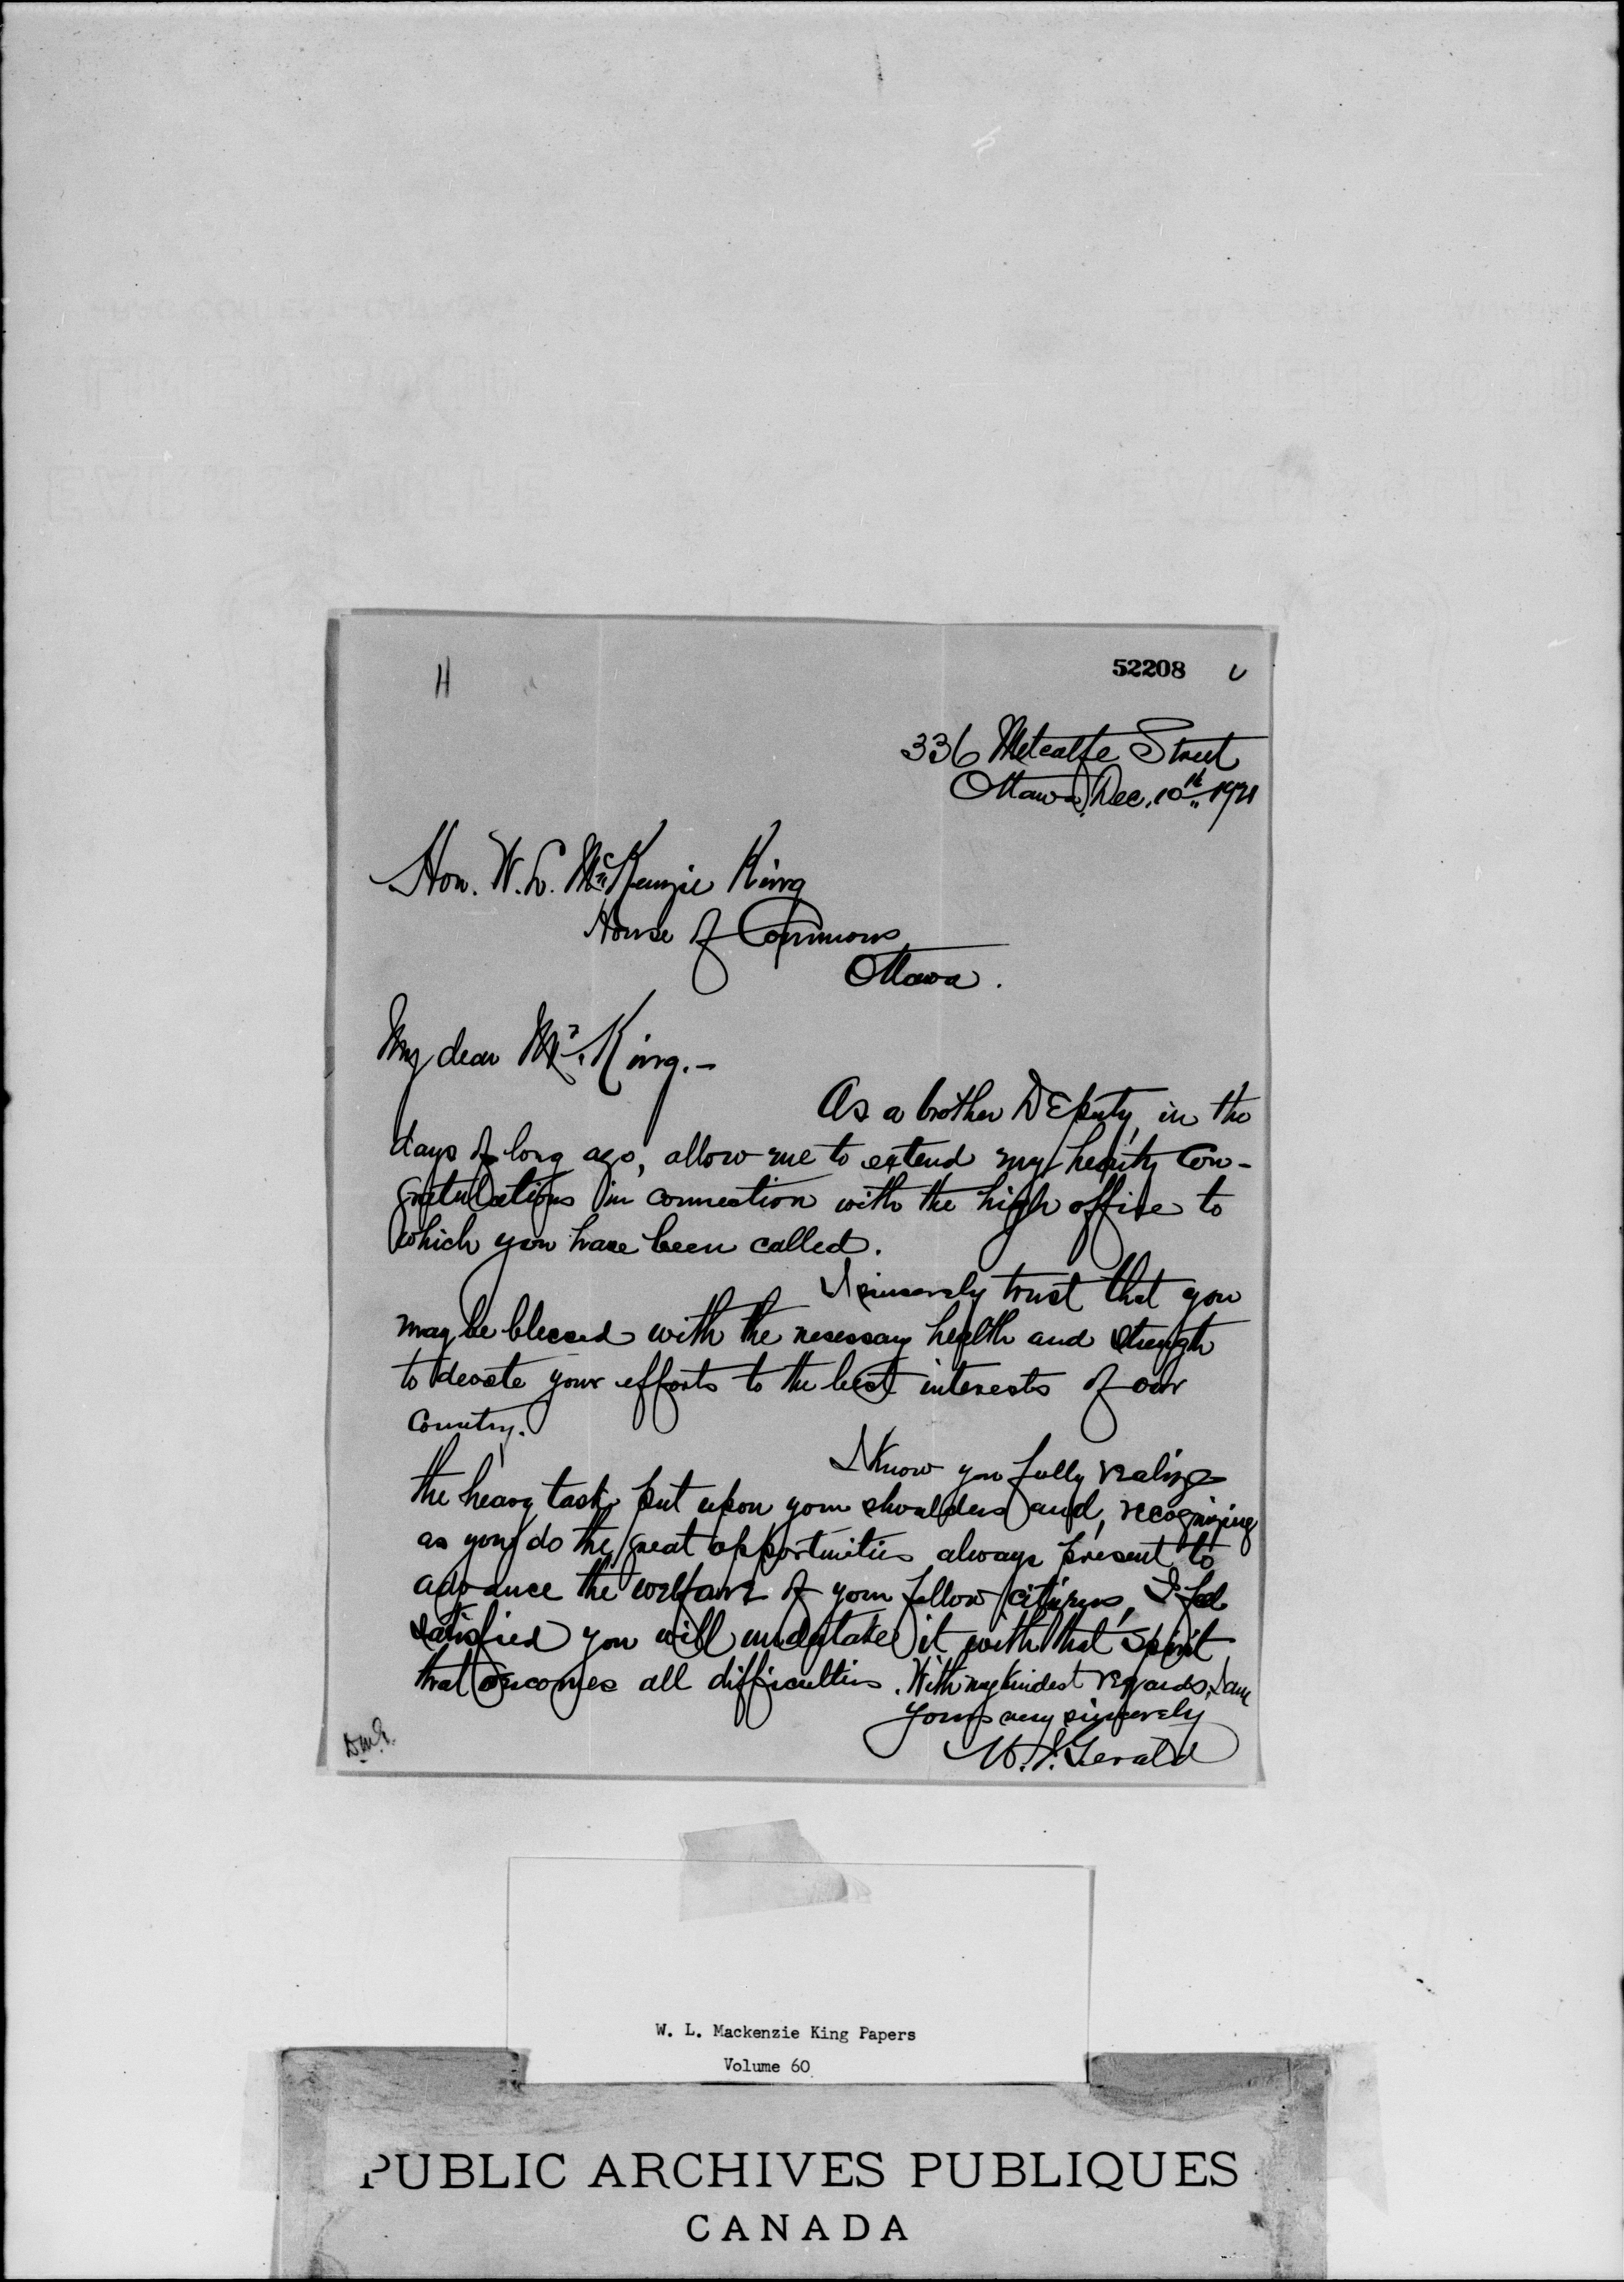 H
52208
336 Metcalfe Street
Ottawa, Dec. 10th 1921
Hon. W. L. McKenzie King
House of Commons
Ottawa.
My dear Mr. King.-
As a brother Deputy, in the
days of long ago, allow me to extend my hearty Con-
gratulations in connection with the high office to
which you have been called.
I sincerely trust that you
may be blessed with the necessary health and strength
to devote your efforts to the best interests of our
Country.
I know you fully realize
the heavy task put upon your shoulders and, recognizing
as you do the great opportunities always present to
advance the welfare of your fellow citizens, I feel
satisfied you will undertake it with that spirit
that overcomes all difficulties. With my kindest regards, I am
Yours very sincerely
W. J. Gerald
W. L. Mackenzie King Papers
Volume 60
PUBLIC ARCHIVES PUBLIQUES
CANADA